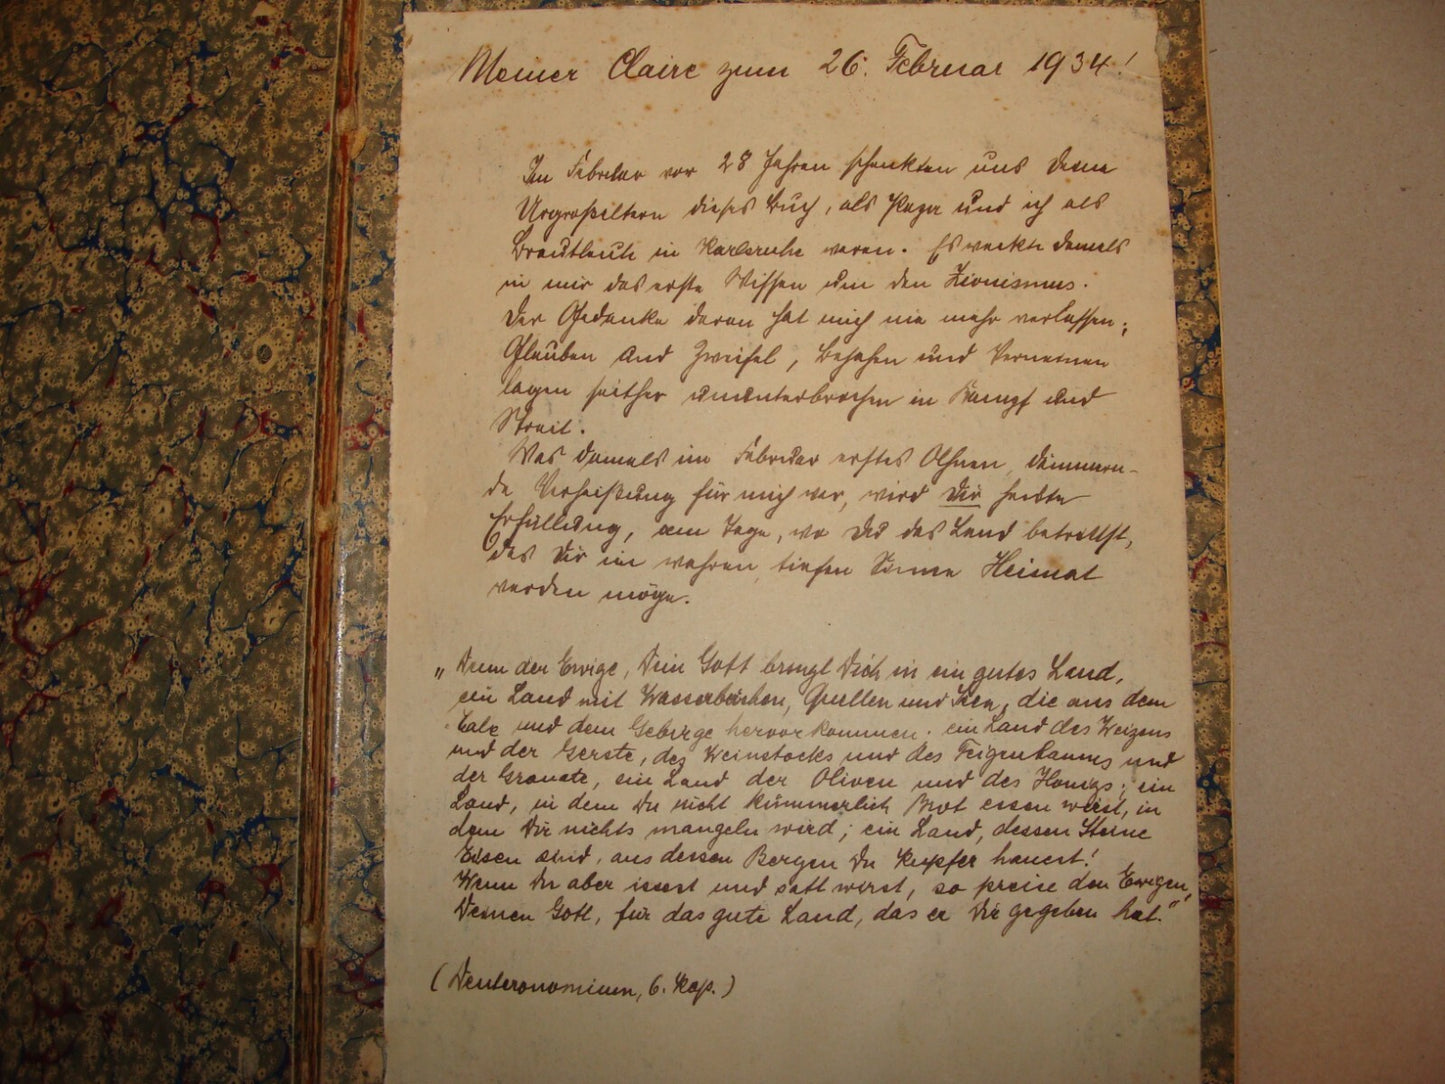 Meiner Claire zum 26. Februar 1934!
Im Februar vor 28 Jahren schenkten uns Deine
Urgroßeltern dieses Buch, als Papa und ich als
Brautleute in Karlsruhe waren. Es weckte damals
in mir das erste Wissen um den Zionismus.
Der Gedanke daran hat mich nie mehr verlassen;
Glauben und Zweifel, Bejahen und Verneinen
lagen seither ununterbrochen in Kampf und
Streit.
Was damals im Februar erstes Ahnen, dämmern-
de Verheißung für mich war, wird Dir heute
Erfüllung, am Tage, wo Du das Land betrittst,
das Dir im wahren, tiefen Sinne Heimat
werden möge.
„Denn der Ewige, Dein Gott bringt Dich in ein gutes Land,
ein Land mit Wasserbächen, Quellen und Seen, die aus dem
Tale und dem Gebirge hervorkommen. ein Land des Weizens
und der Gerste, des Weinstocks und des Feigenbaums und
der Granate, ein Land der Oliven und des Honigs; ein
Land, in dem Du nicht kümmerlich Brot essen wirst, in
dem Dir nichts mangeln wird; ein Land, dessen Steine
Eisen sind, aus dessen Bergen Du Kupfer hauest!
Wenn Du aber issest und satt wirst, so preise den Ewigen,
Deinen Gott, für das gute Land, das er Dir gegeben hat."
(Deuteronomium, 6. Kap.)